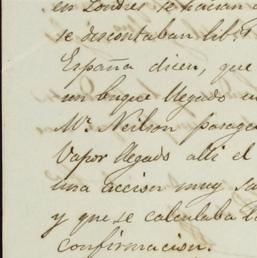 en Londres se hacian
se descontaban lib.
España dicen, que
un buque llegado
Mr. Neilson pasage
Vapor llegado alli el
una accion muy sa
y que se calculaba
confirmacion.